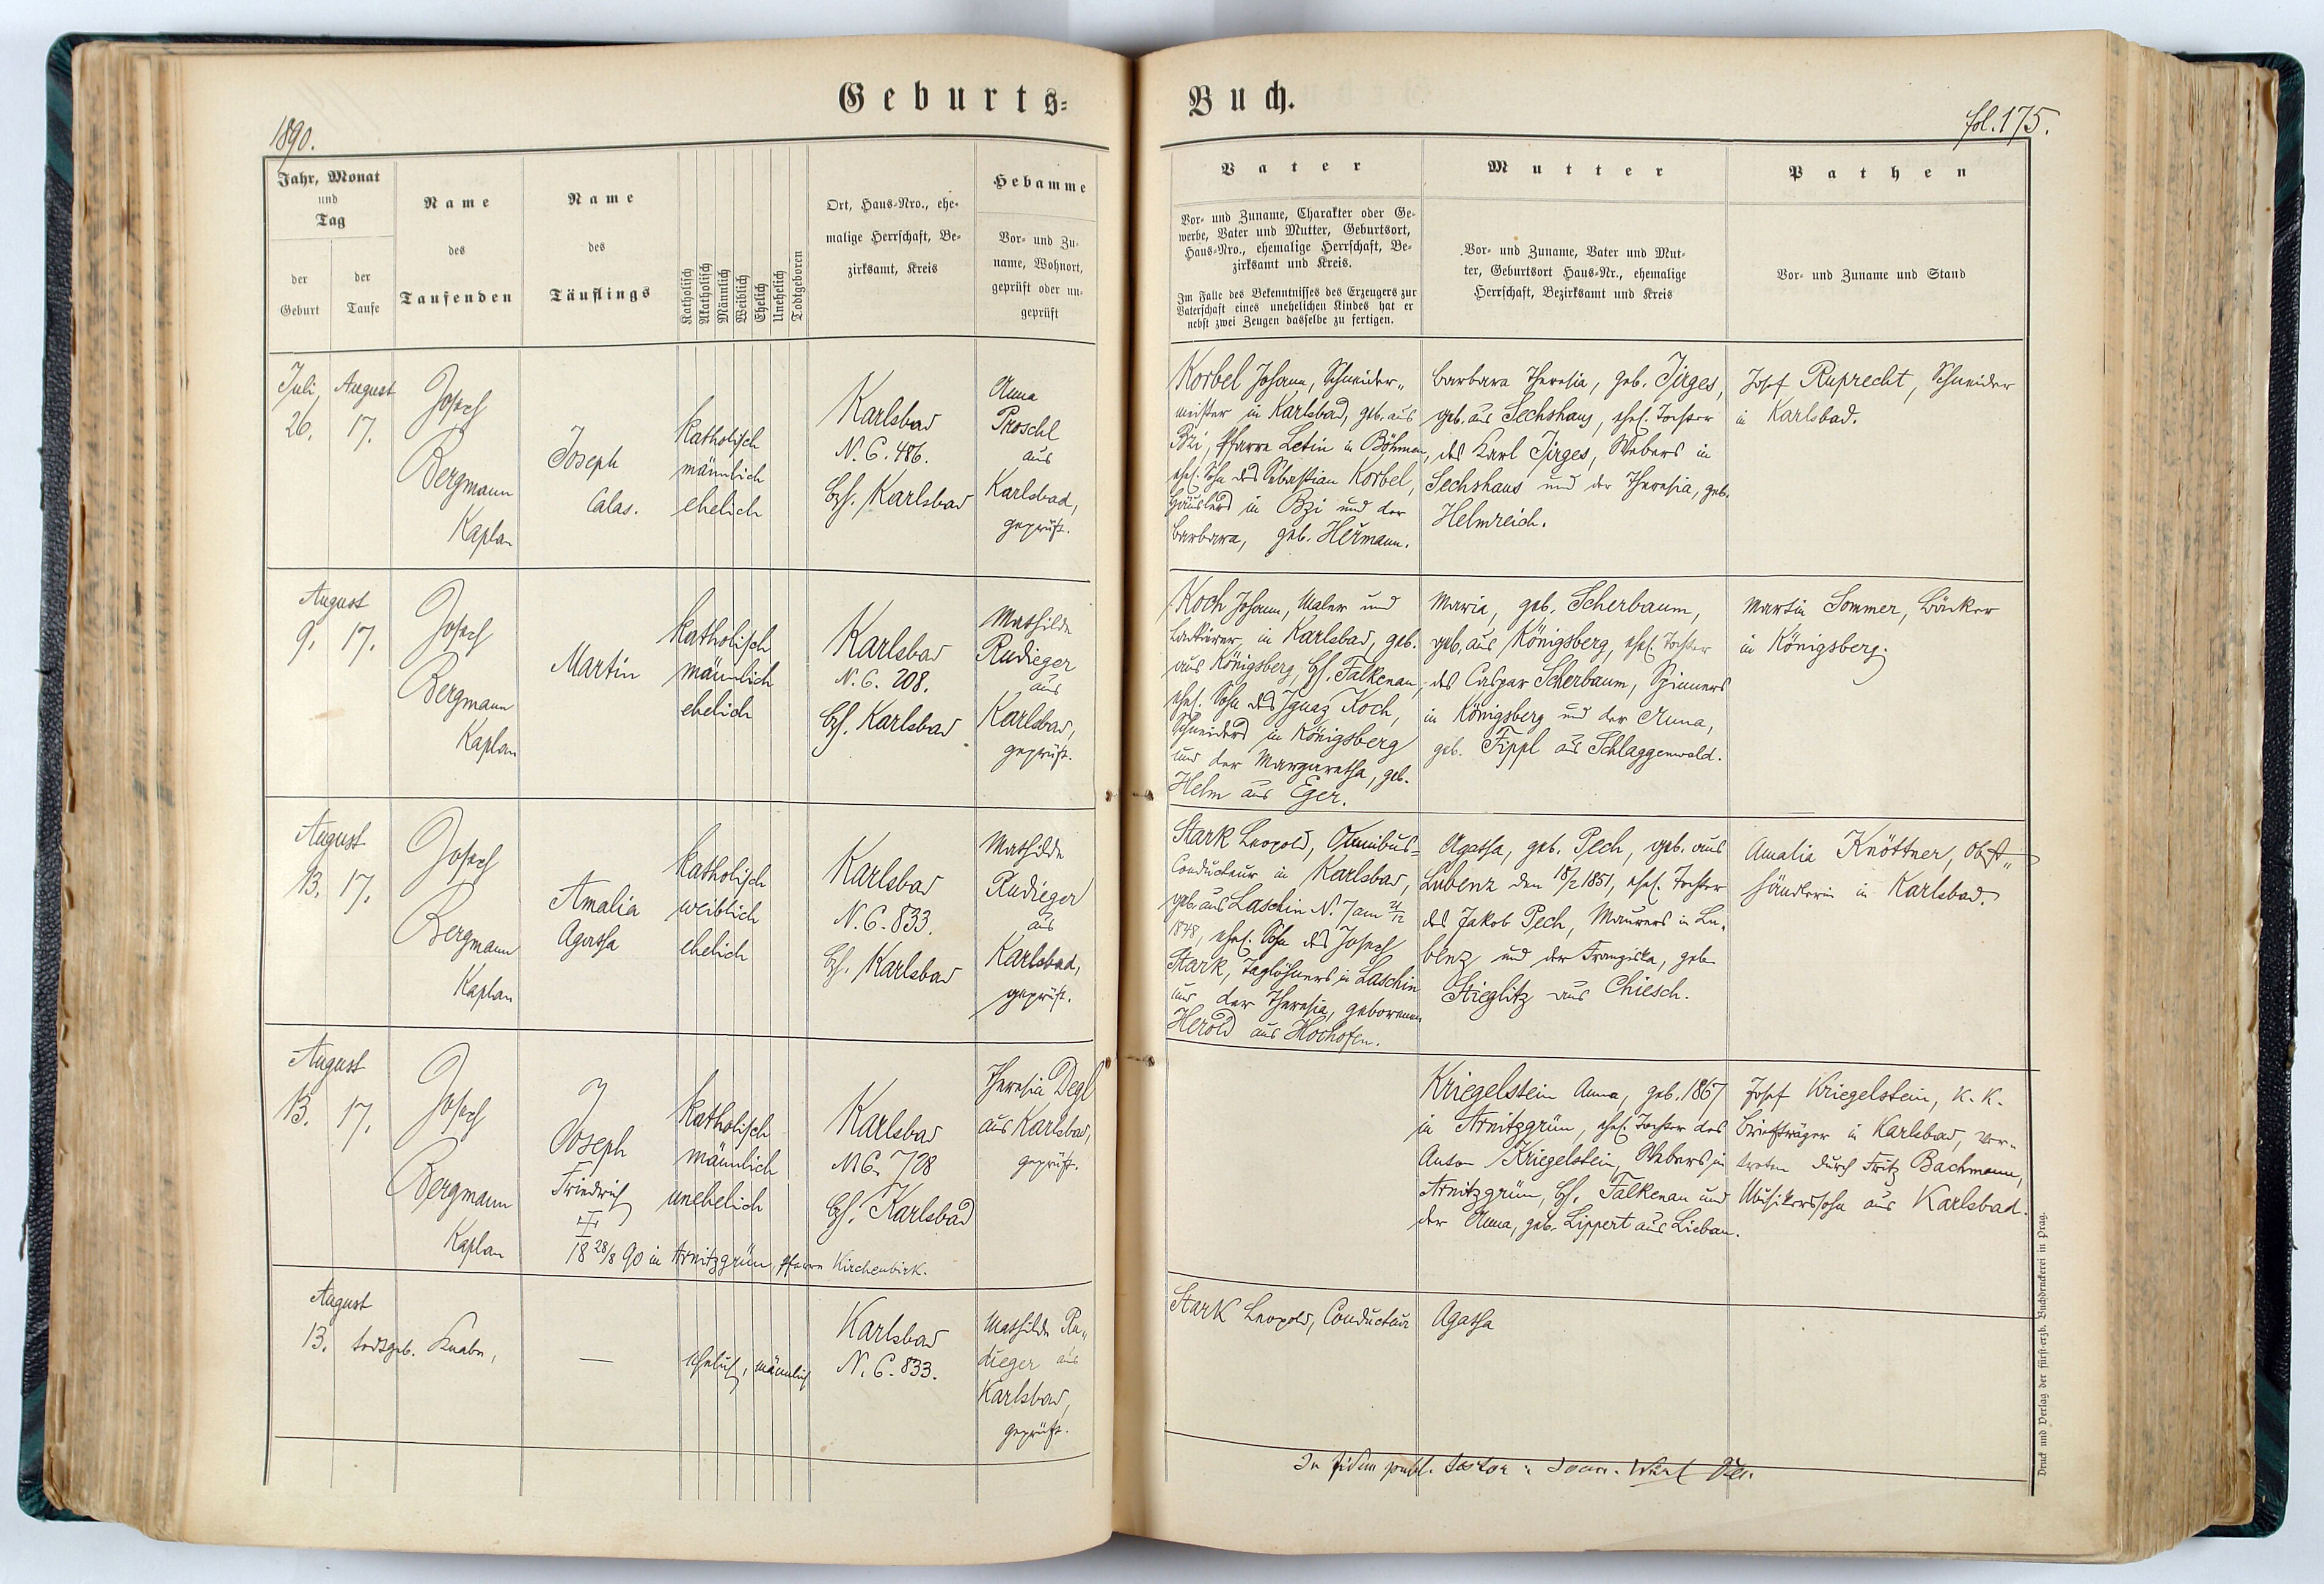 Geburts-
Buch.
1890.
fol. 175.
Jahr, Monat
und
Tag
der
Geburt
der
Taufe
Name
des
Taufenden
Name
des
Täuflings
Katholisch
Akatholisch
Männlich
Weiblich
Ehelich
Unehelich
Todtgeboren
Ort, Haus-Nro., ehe-
malige Herrschaft, Be-
zirksamt, Kreis
Hebamme
Vor- und Zu-
name, Wohnort,
geprüft oder un-
geprüft
Vater
Vor- und Zuname, Charakter oder Ge-
werbe, Vater und Mutter, Geburtsort,
Haus-Nro., ehemalige Herrschaft, Be-
zirksamt und Kreis.
Im Falle des Bekenntnisses des Erzeugers zur
Vaterschaft eines unehelichen Kindes hat er
nebst zwei Zeugen dasselbe zu fertigen.
Mutter
Vor- und Zuname, Vater und Mut-
ter, Geburtsort Haus-Nr., ehemalige
Herrschaft, Bezirksamt und Kreis
Pathen
Vor- und Zuname und Stand
Juli
26.
August
17.
Josef
Bergmann
Kaplan
Joseph
Calas.
katholisch
männlich
ehelich
Karlsbad
N. C. 486.
Bzh. Karlsbad
Anna
Proschl
aus
Karlsbad,
geprüft.
Korbel Johann, Schneider-
meister in Karlsbad, geb. aus
Bzi, Pfarre Letin in Böhmen,
ehel. Sohn des Sebastian Korbel,
Häuslers in Bzi und der
Barbara, geb. Heřmann.
Barbara Theresia, geb. Jirges,
geb. aus Sechshaus, ehel. Tochter
des Karl Jirges, Webers in
Sechshaus und der Theresia, geb.
Helmreich.
Josef Ruprecht, Schneider
in Karlsbad.
August
9. 17.
Josef
Bergmann
Kaplan
Martin
katholisch
männlich
ehelich
Karlsbad
N. C. 208.
Bzh. Karlsbad
Mathilde
Rudieger
aus
Karlsbad,
geprüft.
Koch Johann, Maler und
Lackierer, in Karlsbad, geb.
aus Königsberg, Bzh. Falkenau,
ehel. Sohn des Ignaz Koch,
Schneiders in Königsberg
und der Margaretha, geb.
Helm aus Eger.
Maria, geb. Scherbaum,
geb. aus Königsberg, ehel. Tochter
des Caspar Scherbaum, Spinners
in Königsberg und der Anna,
geb. Fippl aus Schlaggenwald.
Martin Sommer, Bäcker
in Königsberg.
August
13. 17.
Josef
Bergmann
Kaplan
Amalia
Agatha
katholisch
weiblich
ehelich
Karlsbad
N. C. 833.
Bzh. Karlsbad
Mathilde
Rudieger
aus
Karlsbad,
geprüft.
Stark Leopold, Omnibus-
Conducteur in Karlsbad,
geb. aus Laschin N. 7 am 21/12
1848, ehel. Sohn des Josef
Stark, Taglöhners in Laschin
und der Theresia, geborenen
Herold aus Hochofen.
Agatha, geb. Pech, geb. aus
Lubenz den 18/2 1851, ehel. Tochter
des Jakob Pech, Maurers in Lu-
benz und der Franziska, geb.
Stieglitz aus Chiesch.
Amalia Knöttner, Obst-
händlerin in Karlsbad.
August
13. 17.
Josef
Bergmann
Kaplan
Joseph
Friedrich
18 28/8 90 in Arnitzgrün, Pfarre Kirchenbirk.
katholisch
männlich
unehelich
Karlsbad
N C. 728
Bzh. Karlsbad
Theresia Degl
aus Karlsbad,
geprüft.
Kriegelstein Anna, geb. 1867
in Arnitzgrün, ehel. Tochter des
Anton Kriegelstein, Webers in
Arnitzgrün, Bzh. Falkenau und
der Anna, geb. Lippert aus Liebau.
Josef Kriegelstein, K. K.
Briefträger in Karlsbad, ver-
treten durch Fritz Bachmann,
Musikerssohn aus Karlsbad.
August
13. todtgeb. Knabe,
—
ehelich, männlich
Karlsbad
N. C. 833.
Mathilde Ru-
dieger aus
Karlsbad,
geprüft.
Stark Leopold, Conducteur
Agatha
In fidem publ.
Druck und Verlag der fürst-erzb. Buchdruckerei in Prag.